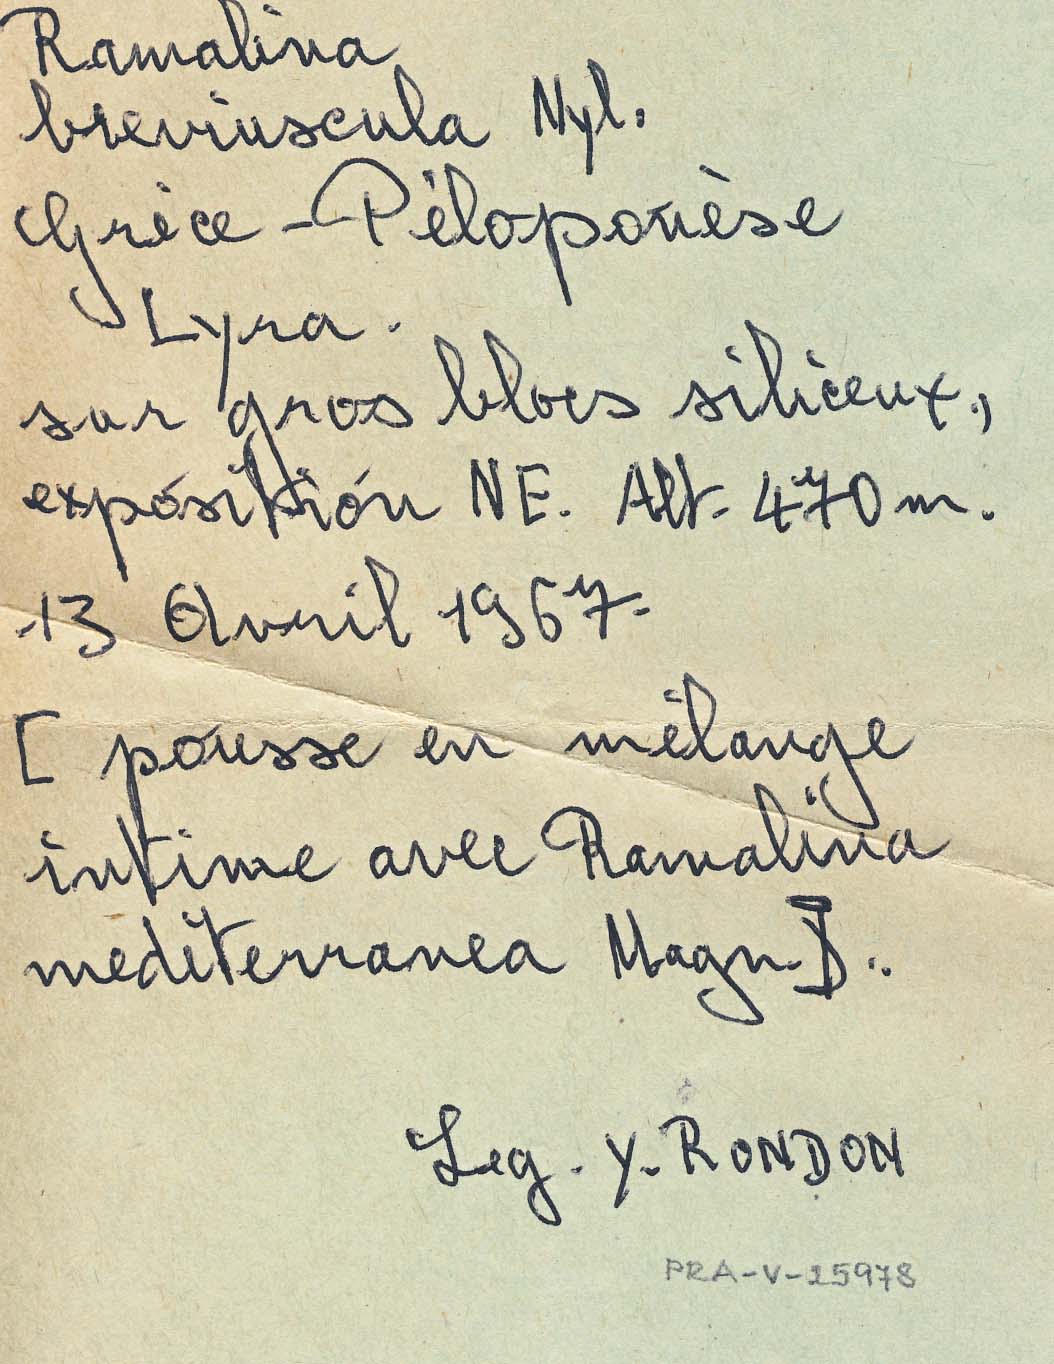 Ramalina
breviuscula Nyl.
Grèce - Péloponèse
Lyra.
sur gros blocs siliceux,
exposition NE. Alt. 470 m.
13 Avril 1967.
[ pousse en mélange
intime avec Ramalina
mediterranea Magn. ].
Leg. Y. RONDON
PRA-V-25978